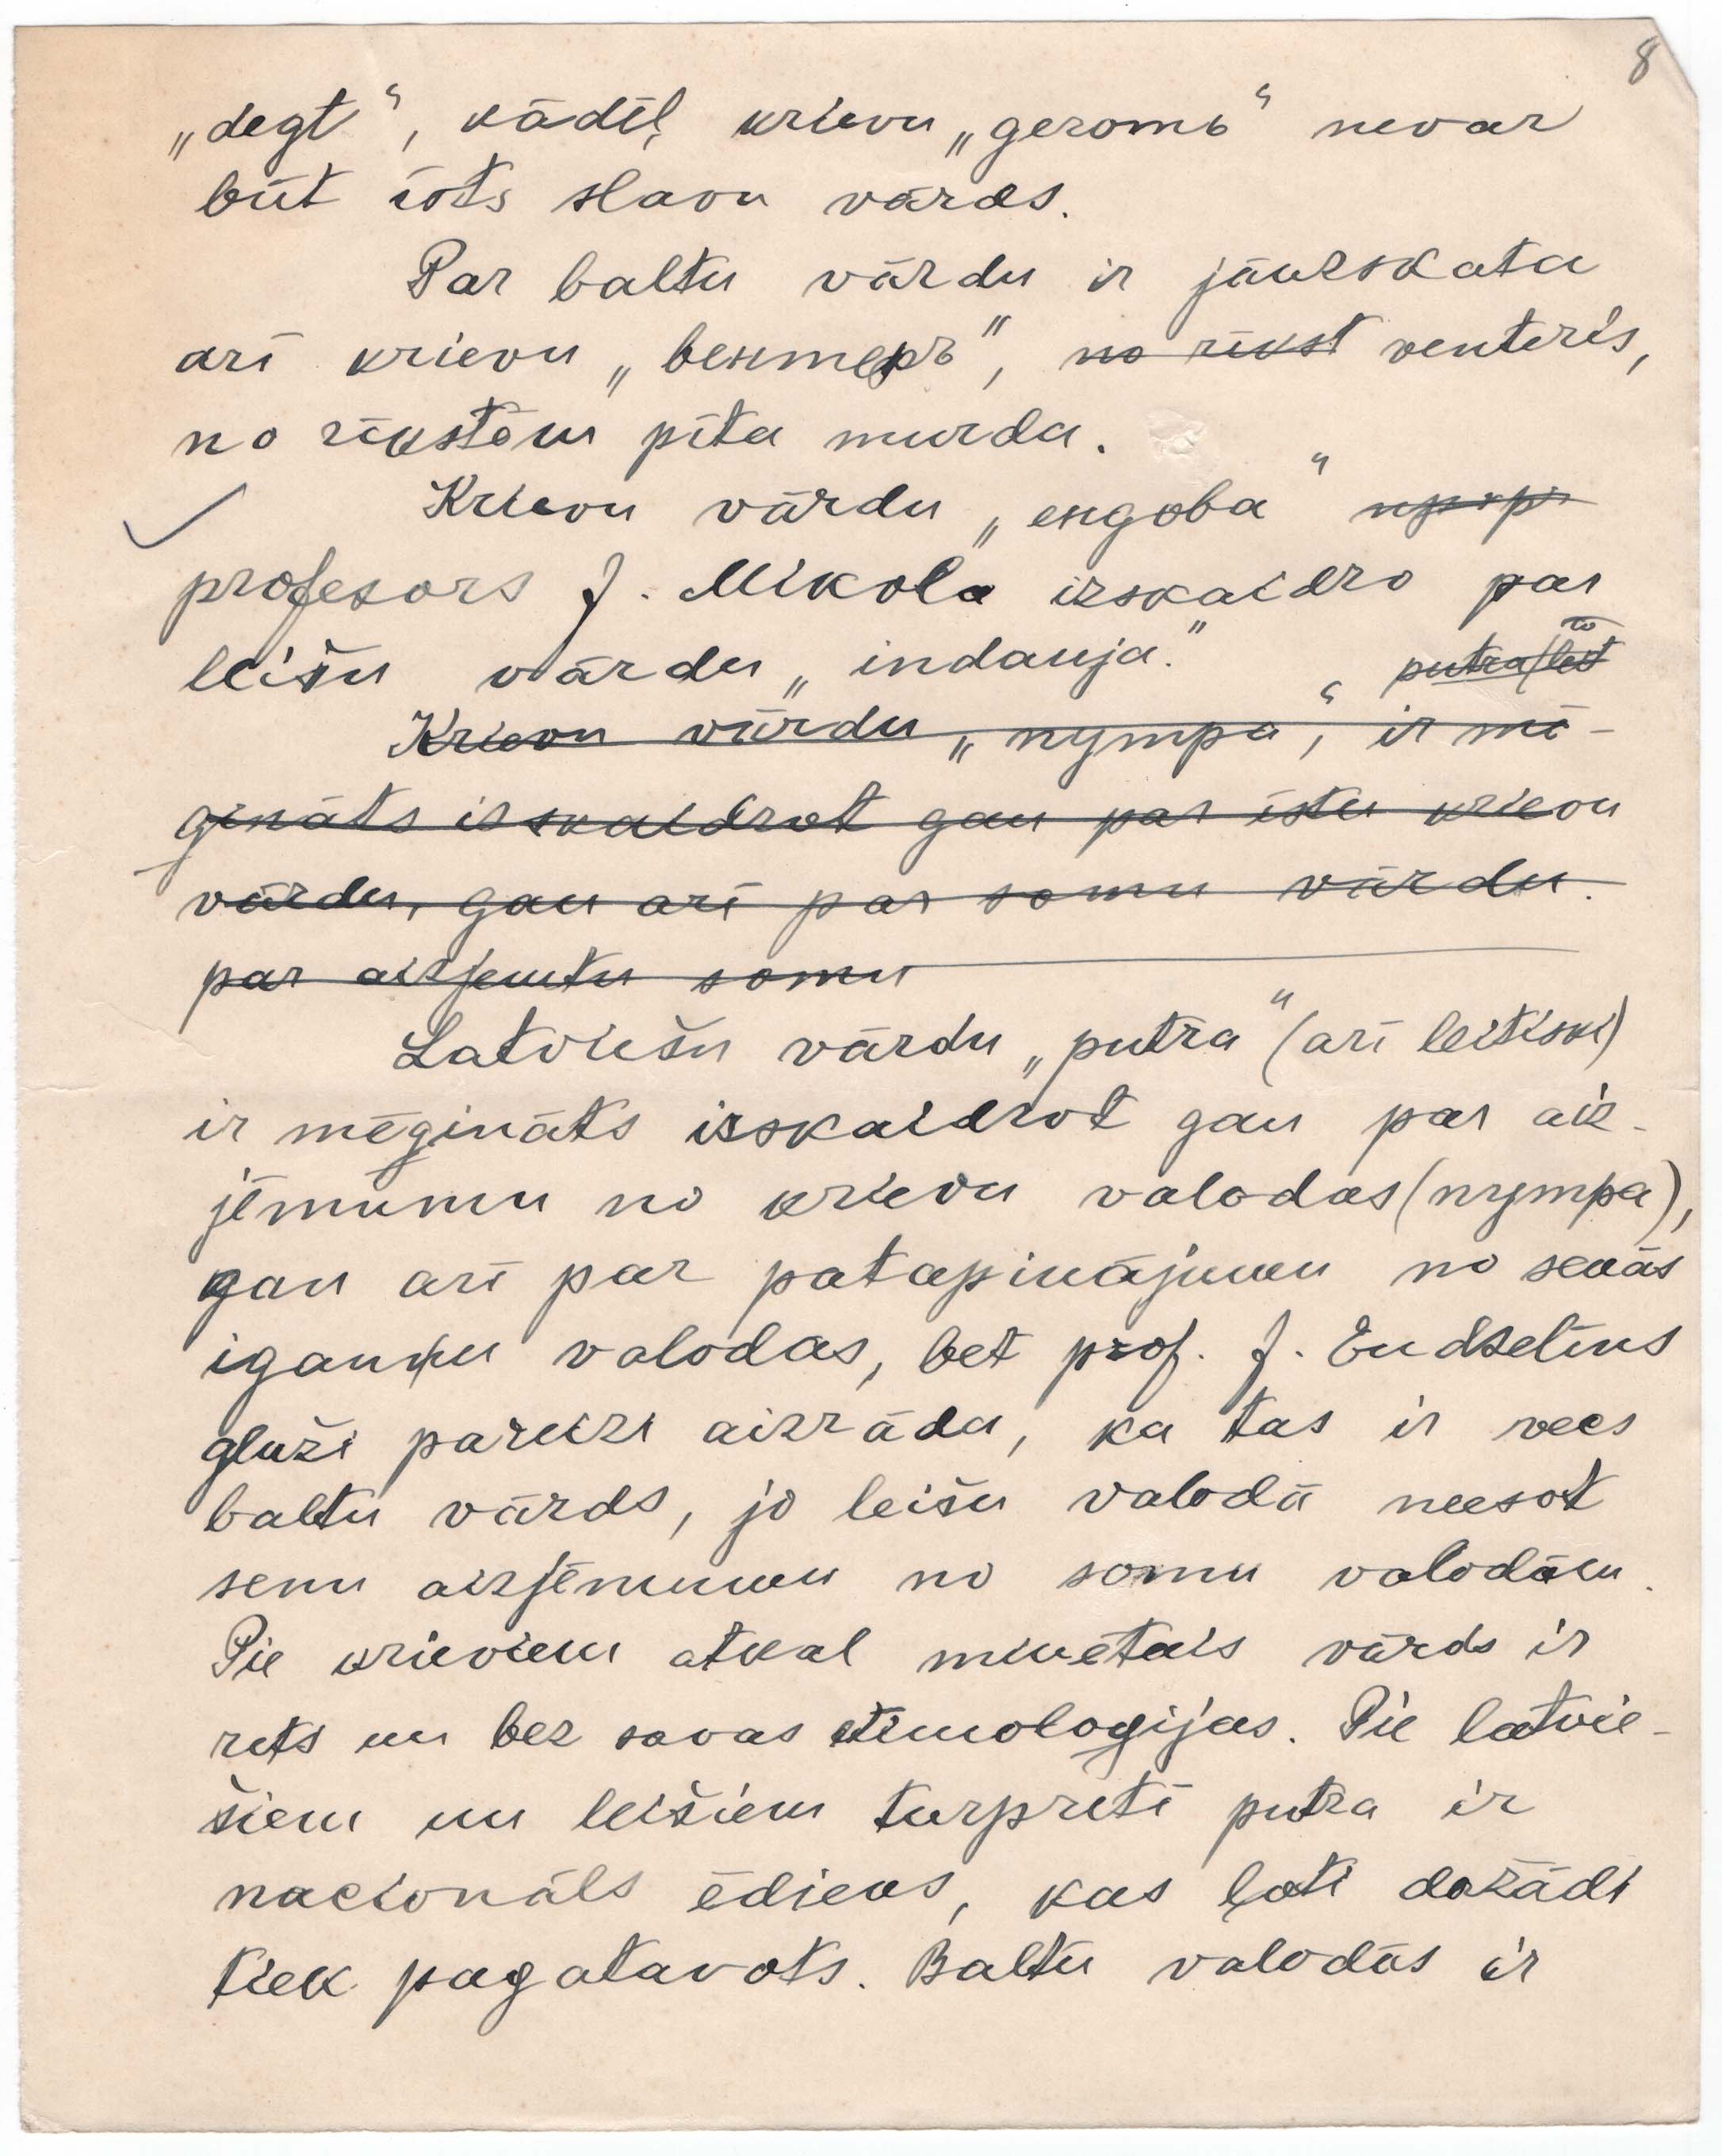 8
„degt“, kādēļ krievu „деготь“ nevar
būt īsts slavu vārds.
Par baltu vārdu ir jāuzskata
arī krievu „вентерь“, no rīkst venteris,
no rīkstēm pīta murda.
Krievu vārdu „ендова“
profesors J. Mikola izskaidro par
leišu vārdu „indauja.“ putra/leit
Krievu vārdu „путра“, ir mē-
ģināts izskaidrot gan par īstu krievu
vārdu, gan arī par somu vārdu.
par aizjemtu somu
Latviešu vārdu „putra“ (arī leitiski)
ir mēģināts izskaidrot gan par aiz-
jēmumu no krievu valodas (путра),
gan arī par patapinājumu no senās
igauņu valodas, bet prof. J. Endzelīns
gluži pareizi aizrāda, ka tas ir vecs
baltu vārds, jo leišu valodā neesot
senu aizjēmumu no somu valodām.
Pie krieviem atkal minētais vārds ir
rets un bez savas etimoloģijas. Pie latvie-
šiem un leišiem turpretī putra ir
nacionāls ēdiens, kas ļoti dažādi
tiek pagatavots. Baltu valodās ir